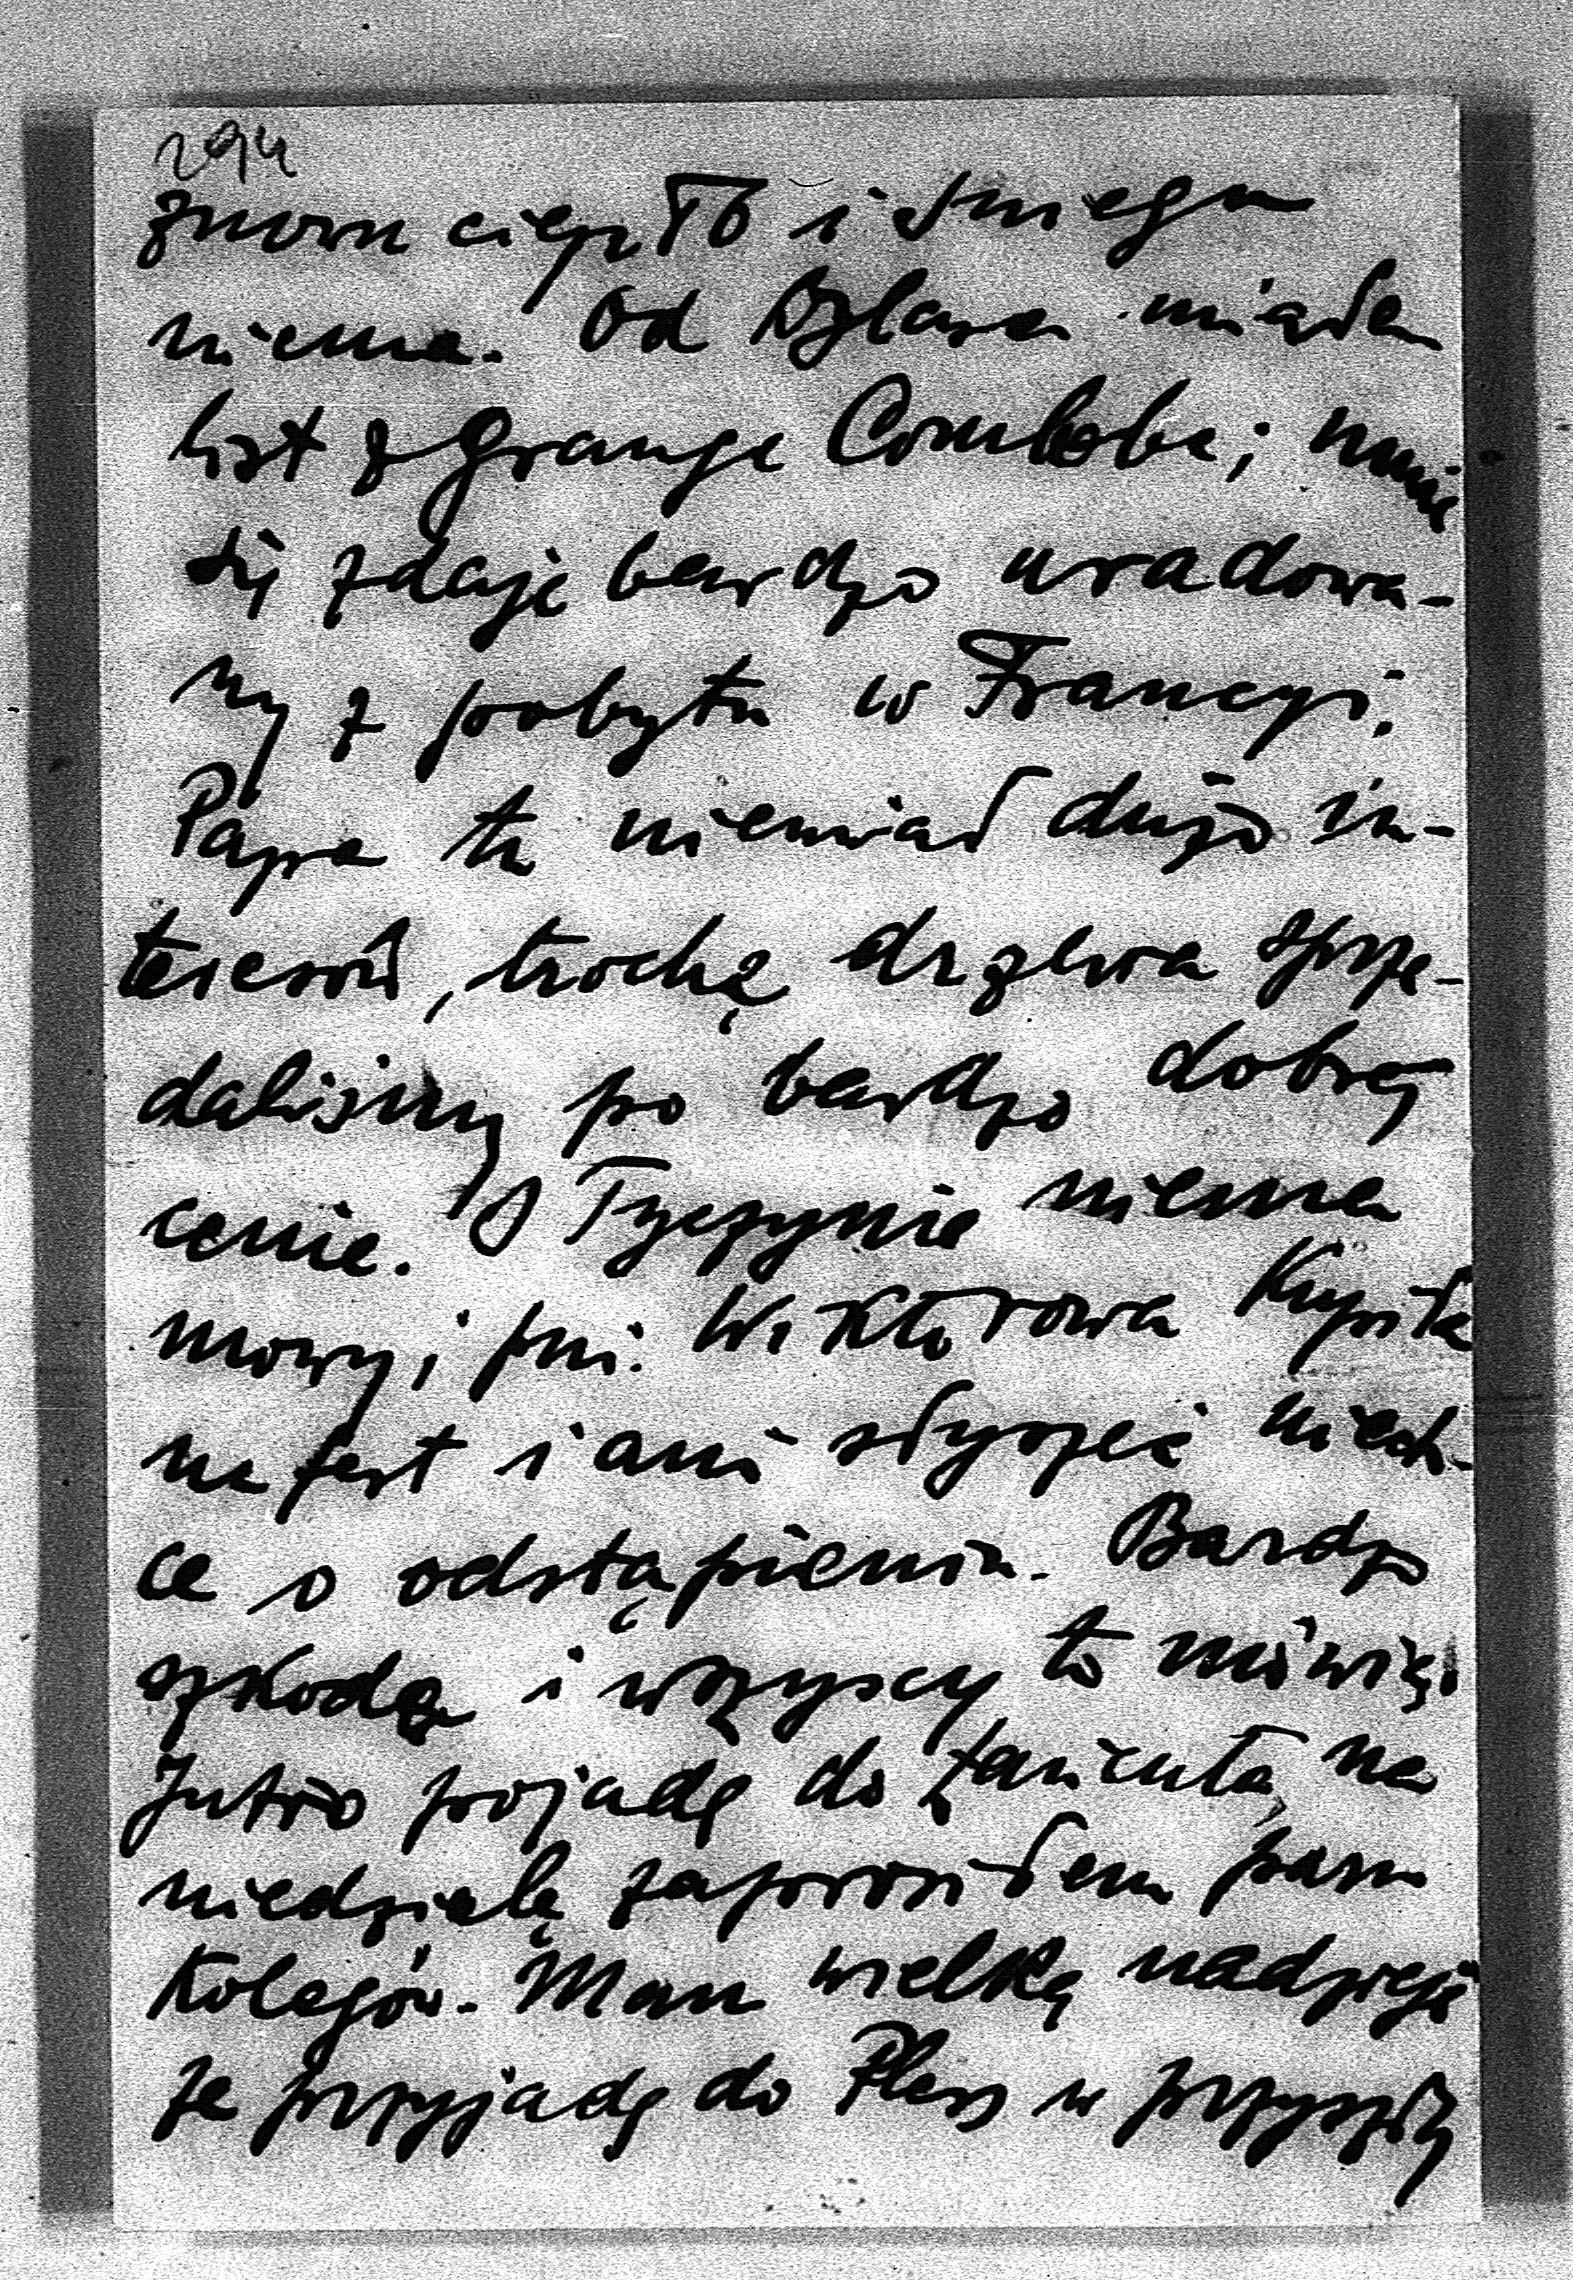 294
znowu ciepło i śniegu
niema. Od miałem
list z Grange Combe; mnie
się zdaje bardzo uradowa-
ny z pobytu w Francyi.
Papa tu niemiał dużo in-
teresów, trochą drzewa sprze-
daliśmy po bardzo dobrej
cenie. O Tyczynie niema
mowy, i pni. Wiktorowa kupiła
na fest i ani słyszeć niech-
ce o odstąpieniu. Bardzo
szkoda i wszyscy to mówią.
Jutro pojadę do Łańcuta, na
niedzielę zaprosiłem paru
Kolegów. Mam wielką nadzieję
że przyjadę do Pless w przyszły